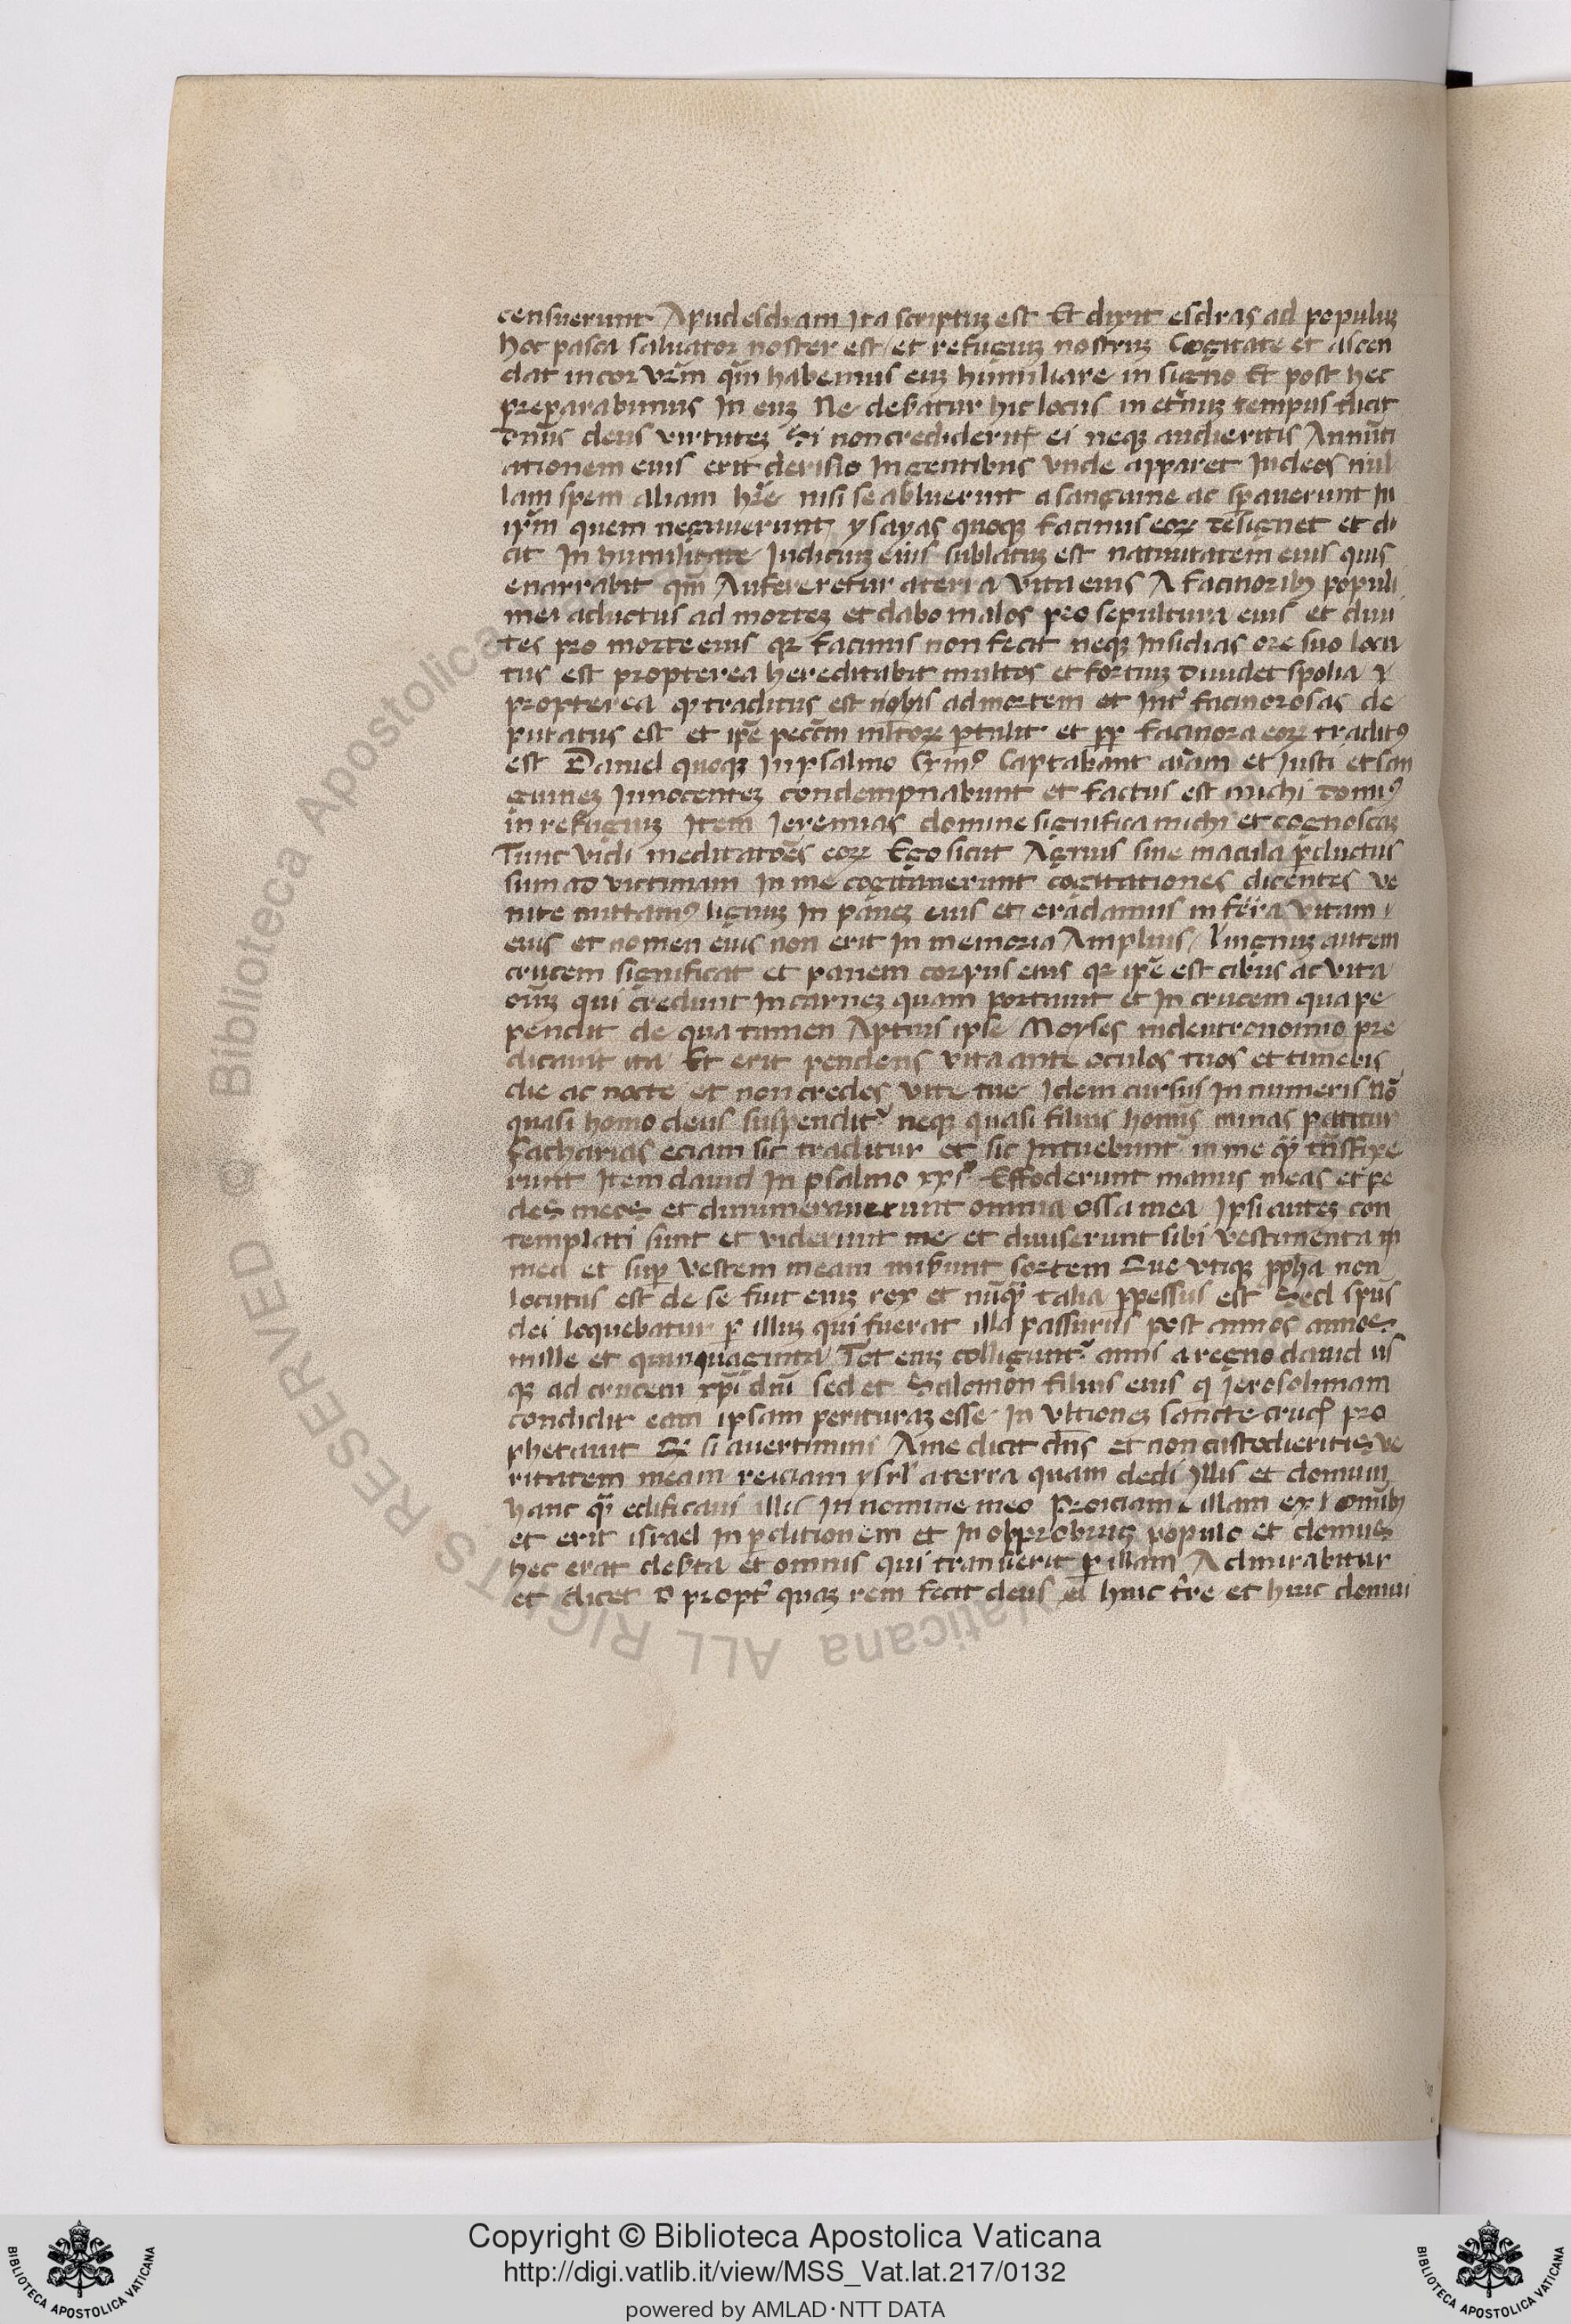 censuerunt Apud esdram Ita scriptuʒ est Et dixit esdras ad populuʒ
hoc pasca saluator noster est et refugiuʒ nostruʒ Cogitate et ascen
dat in cor vr̄m qm̄ habemus euʒ humiliare in signo Et post hec
preparabimus In euʒ Ne debatur hic locus in et̄nuʒ tempus dicit
dn̄us deus virtuteʒ Si non credideritꝭ ei neqʒ audieritis Annūti
ationem eius erit derisio In gentibus vnde apparet Iudeos nul
lam spem aliam hr̄e nisi se abluerunt a sanguine ac sp̄auerunt In
ip̄m quem negauerunt ysayas quoqʒ facinus eoꝝ designet et di
cit In humilitate Iudiciuʒ eius sublatuʒ est natiuitatem eius quis
enarrabit qm̄ Aufereretur a terra vita eius A facinoribꝫ populi
mei aductus ad morteʒ et dabo malos pro sepultura eius et diui
tes pro morte eius qꝛ facinus non fecit neqʒ Insidias ore suo locu
tus est propterea hereditabit multos et fortiuʒ diuidet spolia
propterea ꝙ traditus est nobis ad mortem et Int̉ facinorosas de
putatus est et ip̄e pecc̄m ml̄toꝝ ꝑtulit et ꝓp̄ facinora eoꝝ traditꝰ
est Daniel quoqʒ In psalmo Captabant aīam et Iusti et san
guineʒ Innocenteʒ condempnabunt et factus est michi domiꝰ
in refugiuʒ Item Ieremias domine significa michi et cognoscaʒ
Tunc vidi meditatōes eoꝝ Ego sicut Agnus sine macula ꝑductus
sum ad victimam In me cogitauerunt cogitationes dicentes ve
nite mittamꝰ lignuʒ In paneʒ eius et eradamus in terra vitam
eius et nomen eius non erit In memoria Amplius lingnuʒ autem
crucem significat et panem corpus eius qꝛ ip̄e est cibus ac vita
oīuʒ qui credunt In carneʒ quam portauit et In crucem qua pe
pendit de qua tamen Aptius ipse Moyses in deutronomio pre
dicauit ita Et erit pendens vita ante oculos tuos et timebis
die ac nocte et non credes vite tue Idem cursus In numeris nō
quasi homo deus suspendit̉ neqʒ quasi filius homīs minas patitur
Sacharias eciam sic traditur et sic Intuebunt̉ in me qꝫ tn̄sfixe
runt Item dauid In psalmo xxiᵒ Effoderunt manus meas et pe
des meos et dinumerauerunt omnia ossa mea Ipsi auteʒ con
templati sunt et viderunt me et diuiserunt sibi vestimenta
mea et suꝑ vestem meam mis̄unt sortem Que vtiqʒ ꝓph̄a non
locutus est de se fuit eniʒ rex et nūqᷓ talia ꝑpessus est Sed sp̄us
dei loquebatur ꝑ illuʒ qui fuerat illa passurus post annos annos
mille et quinquaginta Tot eniʒ colligunt̉ anni a regno dauid us
qʒ ad crucem xp̄i dn̄i sed et Salomon filius eius ꝗ Ierosolimam
condidit eam ipsam perituraʒ esse In vltioneʒ sancte crucꝭ pro
phetauit Qꝫ si auertimini A me dicit dn̄s et non custodieritis ve
ritatem meam reiciam ysrl̄ a terra quam dedi yllis et domum
hanc qᷓ edificaui illis In nomine meo Proiciam illam ex omīꝫ
et erit israel In ꝑditionem et In opprobriuʒ populo et domus
hec erat deserta et omnis qui transierit ꝑ illam Admirabitur
et dicet propt̉ quaʒ rem fecit deus huic tr̄re et huic domui
Copyright © Biblioteca Apostolica Vaticana
http://digi.vatlib.it/view/MSS_Vat.lat.217/0132
powered by AMLAD·NTT DATA